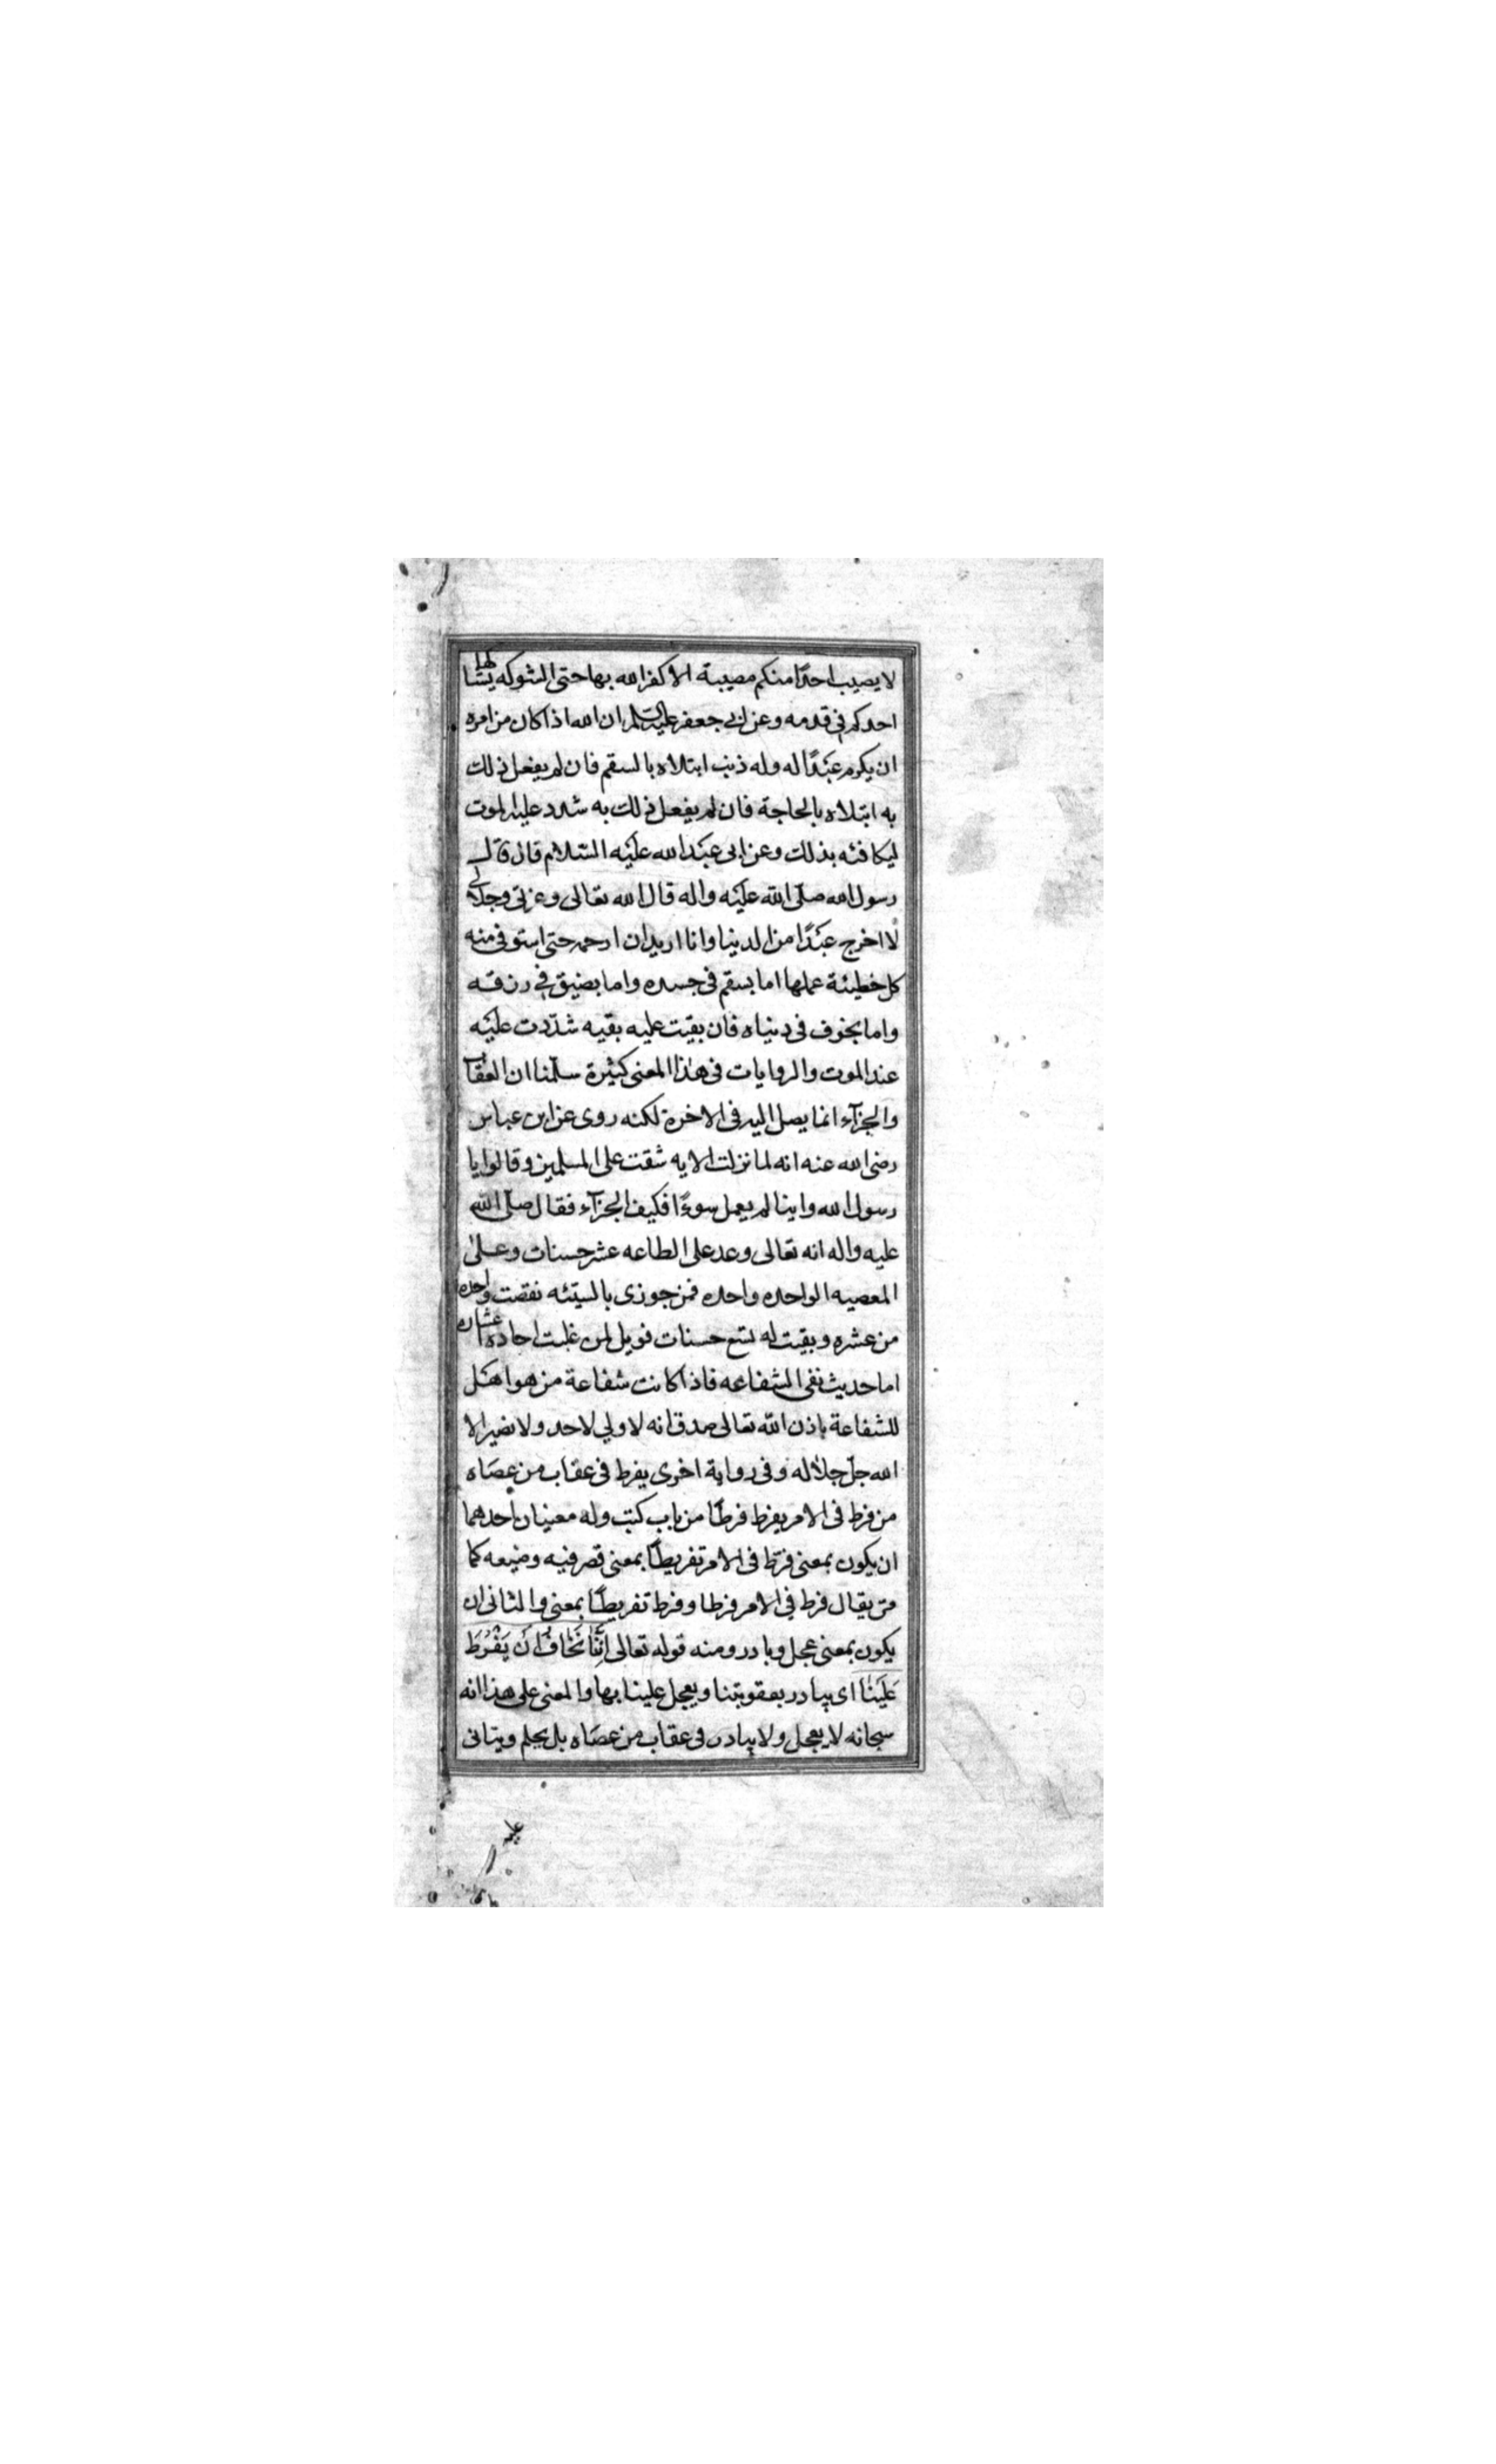 لا يصيب احدًا منكم مصيبة الا كفر الله بها حتى الشوكه يشاكها
احدكم في قدمه وعن ابي جعفر عليه السلم ان الله اذا كان من امره
ان يكرم عبدًا له وله ذنب ابتلاه بالسقم فان لم يفعل ذلك
به ابتلاه بالحاجة فان لم يفعل ذلك به شدد عليه الموت
ليكافئه بذلك وعن ابى عبد الله عليه السّلام قال قال
رسول الله صلّى الله عليه واله قال الله تعالى وعزتي وجلالي
لا اخرج عبدًا من الدنيا وانا اريد ان ارحمه حتى استوفى منه
كل خطيئة عملها اما بسقم فى جسده واما بضيق في رزقه
واما بخوف فى دنياه فان بقيت عليه بقيه شدّدت عليه
عند الموت والروايات فى هذا المعنى كثيرة سلّمنا ان العقاب
والجزآء انما يصل اليه فى الاخرة لكنه روى عن ابن عباس
رضى الله عنه انه لما نزلت الايه شقت على المسلمين وقالوا يا
رسول الله واينا لم يعمل سوءًا فكيف الجزآء فقال صلّى الله
عليه واله انه تعالى وعد على الطاعه عشر حسنات وعلى
المعصيه الواحده واحده فمن جوزى بالسيّئه نقصت واحده
من عشره وبقيت له تسع حسنات فويل لمن غلبت احاده اعشاره
اما حديث نفى الشفاعه فاذا كانت شفاعة من هو اهل
للشفاعة باذن الله تعالى صدق انه لا ولي لاحد ولا نصير الا
الله جلّ جلاله وفى رواية اخرى يفرط فى عقاب من عصاه
من فرط فى الامر يفرط فرطًا من باب كتب وله معنيان احدهما
ان يكون بمعنى فرّط فى الامر تفريطًا بمعنى قصر فيه وضيعه كما
مرّ يقال فرط في الامر فرطا وفرط تفريطًا بمعنى والثانى ان
يكون بمعنى عجل وبادر ومنه قوله تعالى اِنَّنَا نَخَافُ اَن يَفْرُطَ
عَلَيْنَا اى يبادر بعقوبتنا ويعجل علينا بها والمعنى على هذا انه
سبحانه لا يعجل ولا يبادر فى عقاب من عصاه بل يحلم ويتانى
عليه